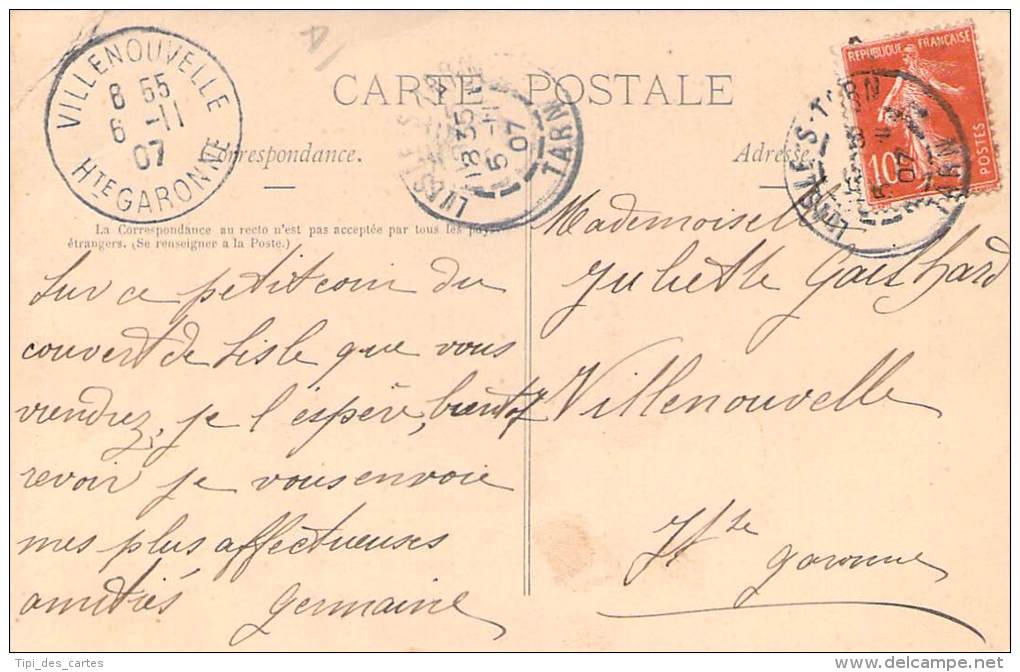 VILLENOUVELLE
8 55
6 -11
07
HTE GARONNE
CARTE POSTALE
TARN
18 35
5 -11
07
REPUBLIQUE FRANÇAISE
10
POSTES
Correspondance.
Adresse
La Correspondance au recto n'est pas acceptée par tous les pays
étrangers. (Se renseigner à la Poste.)
Sur ce petit coin du
couvert de Lisle que vous
viendrez, je l'espère, bientot
revoir je vous envoie
mes plus affectueuses
amitiés Germaine
Mademoiselle
Juliette Gailhard
Villenouvelle
Hte Garonne
Tipi_des_cartes
www.delcampe.net